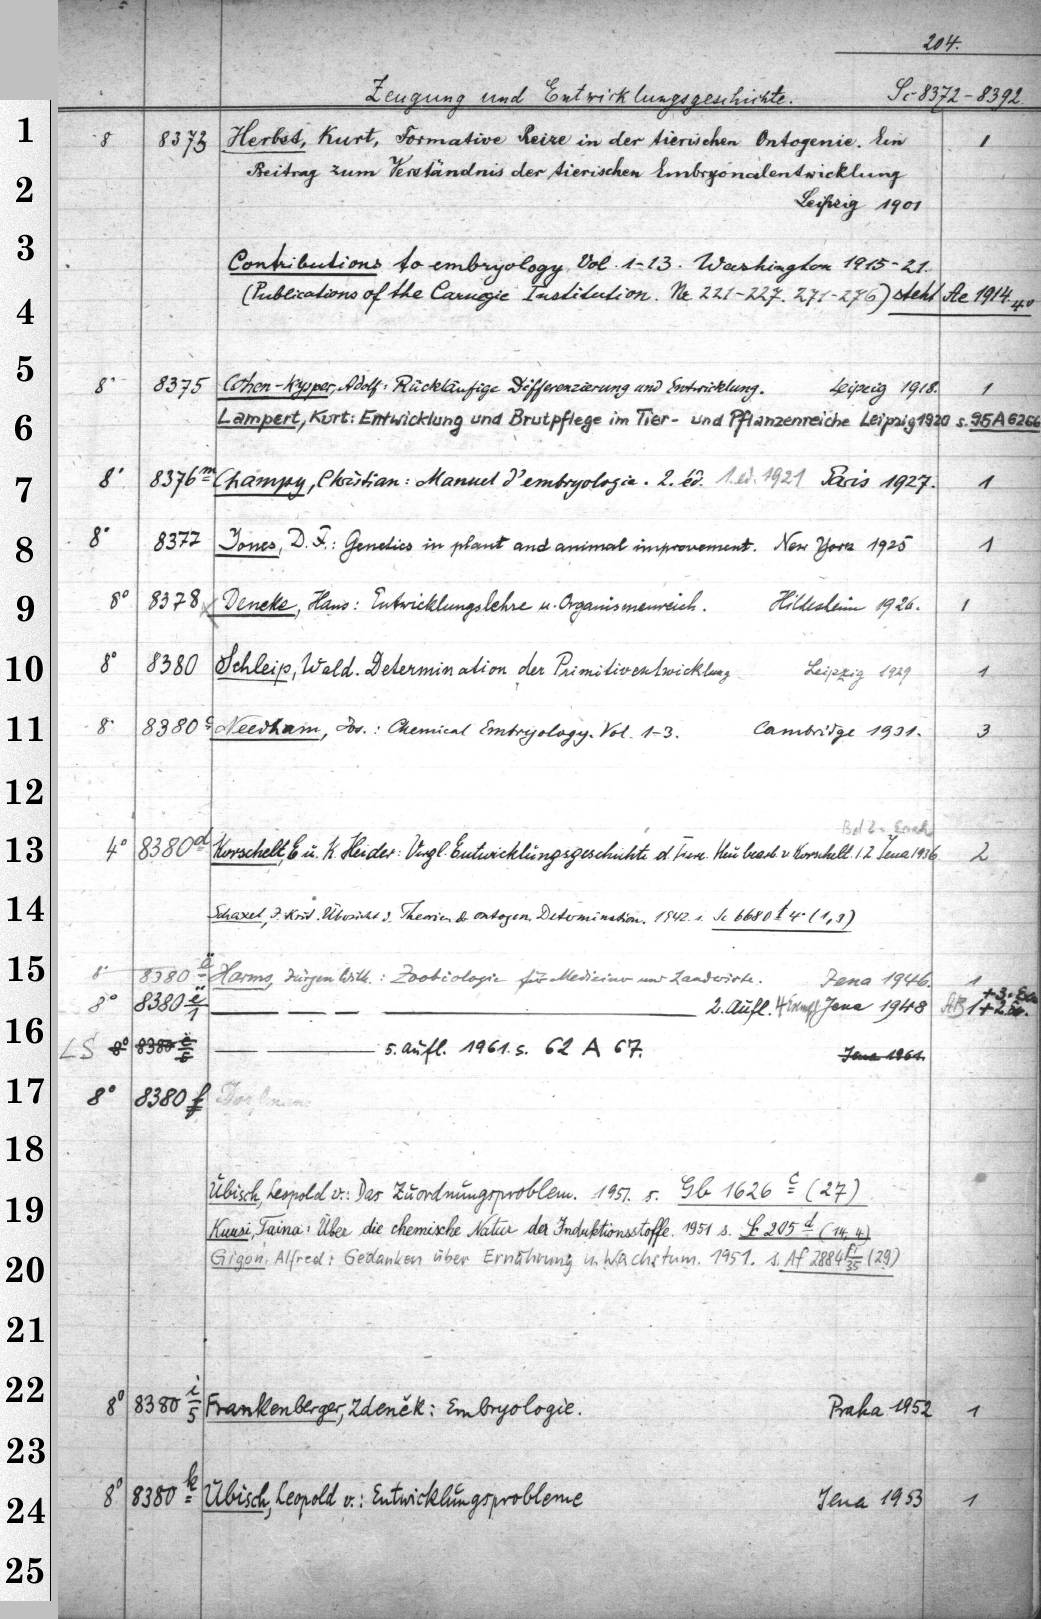 204.
Zeugung und Entwicklungsgeschichte. Sc 8372-8392.
1 8 8373 Herbst, Kurt, Formative Reize in der tierischen Ontogenie. Ein 1
2 Beitrag zum Verständnis der tierischen Embryonalentwicklung
Leipzig 1901
3 Contributions to embryology Vol. 1-13. Washington 1915-21.
4 (Publications of the Carnegie Institution. Nr. 221-227. 271-276) steht Ae 1914 4°
5 8° 8375 Cohen-Kysper, Adolf: Rückläufige Differenzierung und Entwicklung. Leipzig 1918. 1
6 Lampert, Kurt: Entwicklung und Brutpflege im Tier- und Pflanzenreiche Leipzig 1920 s. 95 A 6266
7 8° 8376 m Champy, Christian: Manuel d'embryologie. 2. éd. 1. éd. 1921 Paris 1927. 1
8 8° 8377 Jones, D. F.: Genetics in plant and animal improvement. New York 1925 1
9 8° 8378 Deneke, Hans: Entwicklungslehre u. Organismenreich. Hildesheim 1926. 1
10 8° 8380 Schleip, Wald. Determination der Primitiventwicklung Leipzig 1929 1
11 8° 8380 c Needham, Jos.: Chemical Embryology. Vol. 1-3. Cambridge 1931. 3
12
13 4° 8380 d Korschelt, E. u. K. Heider: Vergl. Entwicklungsgeschichte d. Tiere. Neu bearb. v. Korschelt. 1.2 Jena 1936 2
14 Schaxel, J. Krit. Übersicht d. Theorien d. ontogen. Determination. 1942. s. Sc 6680 t 4° (1,3)
15 8° 8380 e Harms, Jürgen Wilh.: Zoobiologie für Mediziner und Landwirte. Jena 1946. 1
8° 8380 e/1 — — — — 2. Aufl. Jena 1948
16 LS 8° 8380 e/5 — — 5. Aufl. 1961. s. 62 A 67. Jena 1961.
17 8° 8380 f
18
Übisch, Leopold v.: Das Zuordnungsproblem. 1951. s. Gb 1626 c (27)
19 Kuusi, Taina: Über die chemische Natur der Induktionsstoffe. 1951 s. 205 d (14, 4)
20 Gigon, Alfred: Gedanken über Ernährung u. Wachstum. 1951. s. Af 2884 fi/35 (29)
21
22 8° 8380 i/5 Frankenberger, Zdeněk: Embryologie. Praha 1952 1
23
24 8° 8380 k Übisch, Leopold v.: Entwicklungsprobleme Jena 1953 1
25